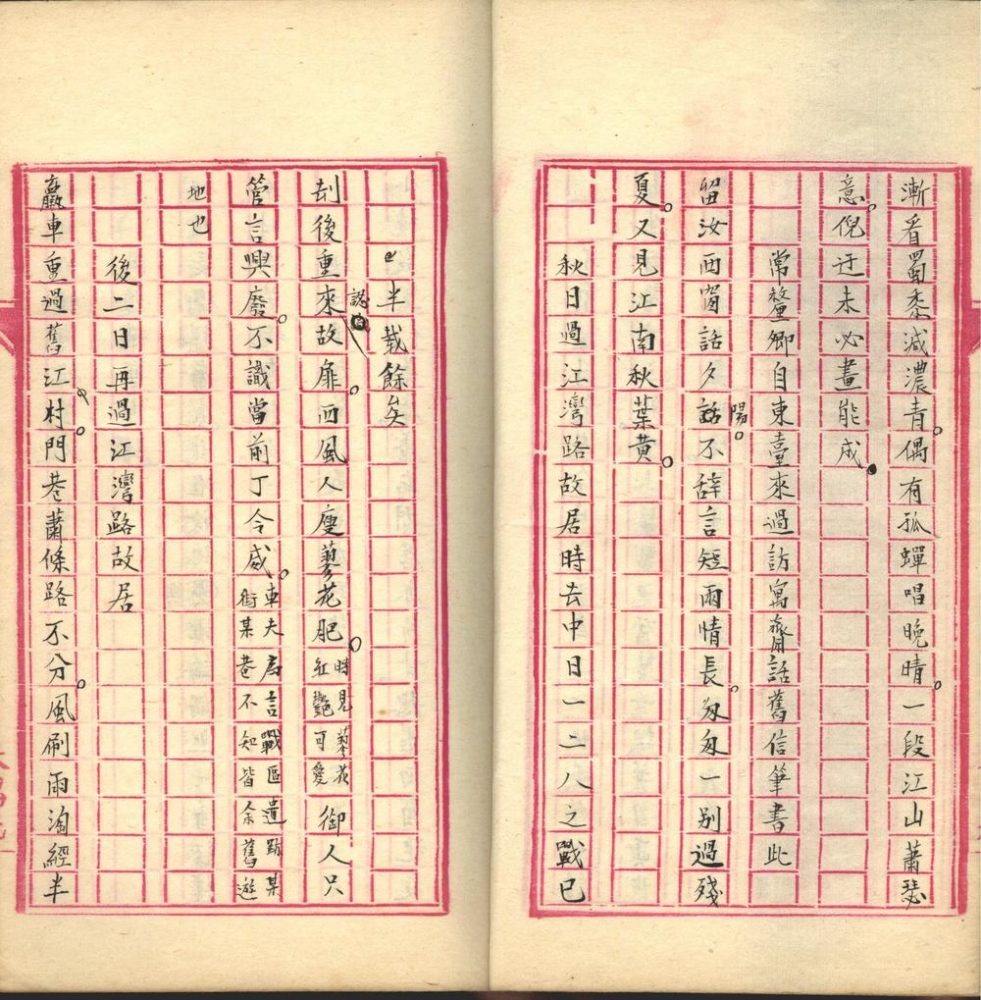 漸看蜀黍減濃青。偶有孤蟬唱晚晴。一段江山蕭瑟
意。倪迂未必畫能成。
常鳌卿自東臺來過訪寓齋話舊信筆書此
留汝西窗話夕話陽。不辭言短兩情長。匆匆一别過殘
夏。又見江南秋葉黄。
秋日過江灣路故居時去中日一二八之戰已
半載餘矣
刦後重來故認扉。西風人瘦蓼花肥。時見蓼花紅艷可愛御人只
管言興廢。不識當前丁令威。車夫為言戰區遺跡某街某巷不知皆余舊遊
地也
後二日再過江灣路故居
羸車重過舊江村。門巷蕭條路不分。風刷雨淘經半